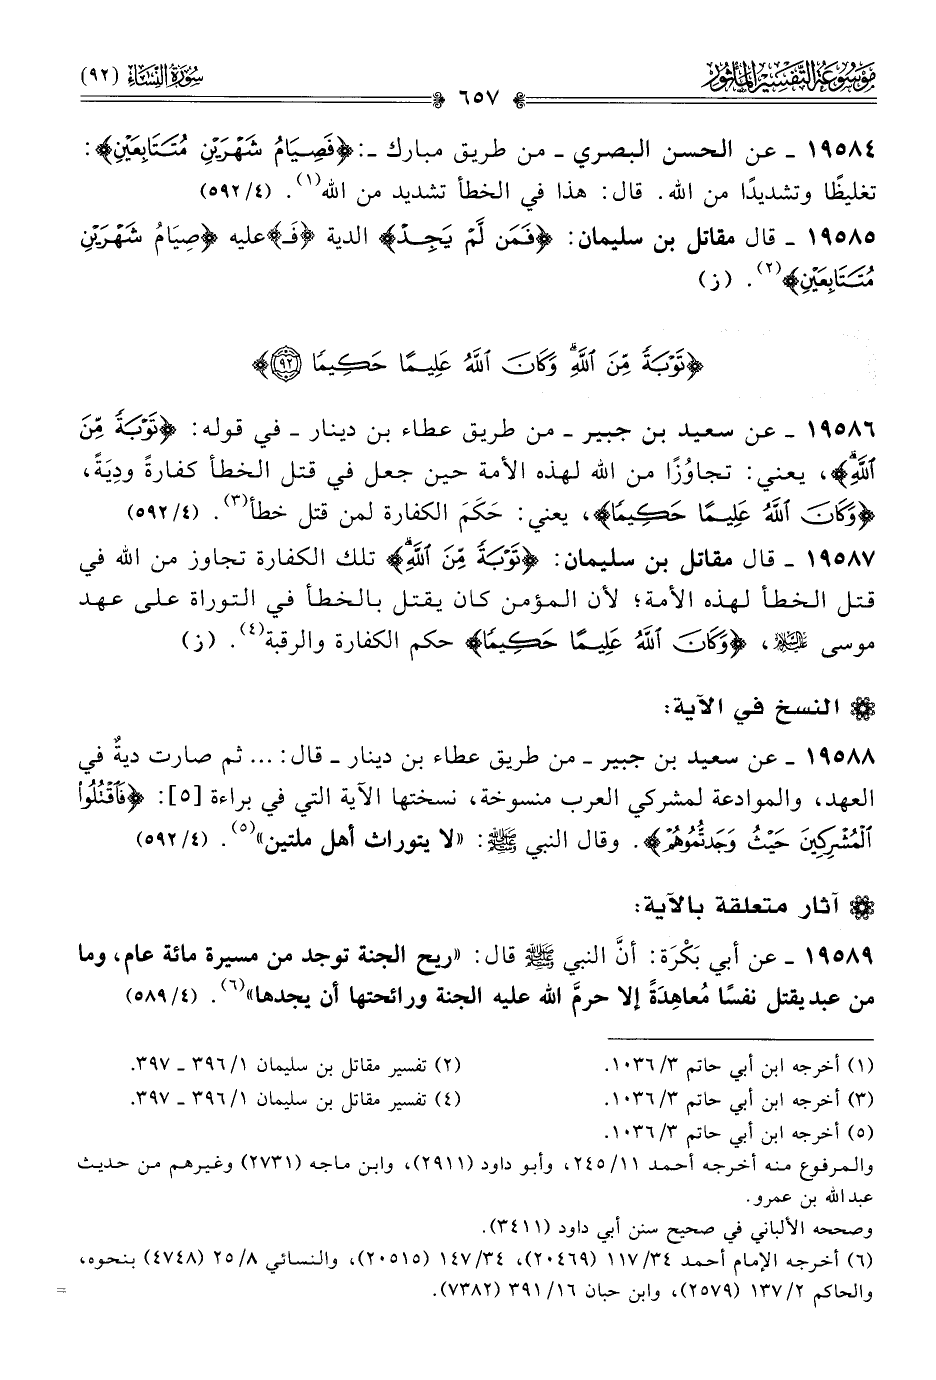 موسوعة التفسير المأثور
سورة النساء (٩٢)
٦٥٧
١٩٥٨٤ ـ عن الحسن البصري ـ من طريق مبارك ـ: ﴿فَصِيَامُ شَهْرَيْنِ مُتَتَابِعَيْنِ﴾:
تغليظًا وتشديدًا من الله. قال: هذا في الخطأ تشديد من الله(١). (٥٩٢/٤)
١٩٥٨٥ ـ قال مقاتل بن سليمان: ﴿فَمَن لَّمْ يَجِدْ﴾ الدية ﴿فَـ﴾عليه ﴿صِيَامُ شَهْرَيْنِ
مُتَتَابِعَيْنِ﴾(٢). (ز)
﴿تَوْبَةً مِّنَ ٱللَّهِۗ وَكَانَ ٱللَّهُ عَلِيمًا حَكِيمًا ٩٢﴾
١٩٥٨٦ ـ عن سعيد بن جبير ـ من طريق عطاء بن دينار ـ في قوله: ﴿تَوْبَةً مِّنَ
ٱللَّهِۗ﴾، يعني: تجاوُزًا من الله لهذه الأمة حين جعل في قتل الخطأ كفارةً ودِيَةً،
﴿وَكَانَ ٱللَّهُ عَلِيمًا حَكِيمًا﴾، يعني: حَكَمَ الكفارة لمن قتل خطأ(٣). (٥٩٢/٤)
١٩٥٨٧ ـ قال مقاتل بن سليمان: ﴿تَوْبَةً مِّنَ ٱللَّهِۗ﴾ تلك الكفارة تجاوز من الله في
قتل الخطأ لهذه الأمة؛ لأن المؤمن كان يقتل بالخطأ في التوراة على عهد
موسى عليه السلام، ﴿وَكَانَ ٱللَّهُ عَلِيمًا حَكِيمًا﴾ حكم الكفارة والرقبة(٤). (ز)
النسخ في الآية:
١٩٥٨٨ ـ عن سعيد بن جبير ـ من طريق عطاء بن دينار ـ قال: ... ثم صارت ديةٌ في
العهد، والموادعة لمشركي العرب منسوخة، نسختها الآية التي في براءة [٥]: ﴿فَٱقْتُلُوا۟
ٱلْمُشْرِكِينَ حَيْثُ وَجَدتُّمُوهُمْ﴾. وقال النبي ﷺ: «لا يتوراث أهل ملتين»(٥). (٥٩٢/٤)
آثار متعلقة بالآية:
١٩٥٨٩ ـ عن أبي بَكْرَة: أنَّ النبي ﷺ قال: «ريح الجنة توجد من مسيرة مائة عام، وما
من عبد يقتل نفسًا مُعاهِدَةً إلا حرمَّ الله عليه الجنة ورائحتها أن يجدها»(٦). (٥٨٩/٤)
(١) أخرجه ابن أبي حاتم ١٠٣٦/٣. (٢) تفسير مقاتل بن سليمان ٣٩٦/١ ـ ٣٩٧.
(٣) أخرجه ابن أبي حاتم ١٠٣٦/٣. (٤) تفسير مقاتل بن سليمان ٣٩٦/١ ـ ٣٩٧.
(٥) أخرجه ابن أبي حاتم ١٠٣٦/٣.
والمرفوع منه أخرجه أحمد ٢٤٥/١١، وأبو داود (٢٩١١)، وابن ماجه (٢٧٣١) وغيرهم من حديث
عبدالله بن عمرو.
وصححه الألباني في صحيح سنن أبي داود (٣٤١١).
(٦) أخرجه الإمام أحمد ١١٧/٣٤ (٢٠٤٦٩)، ١٤٧/٣٤ (٢٠٥١٥)، والنسائي ٢٥/٨ (٤٧٤٨) بنحوه،
والحاكم ١٣٧/٢ (٢٥٧٩)، وابن حبان ٣٩١/١٦ (٧٣٨٢).
=